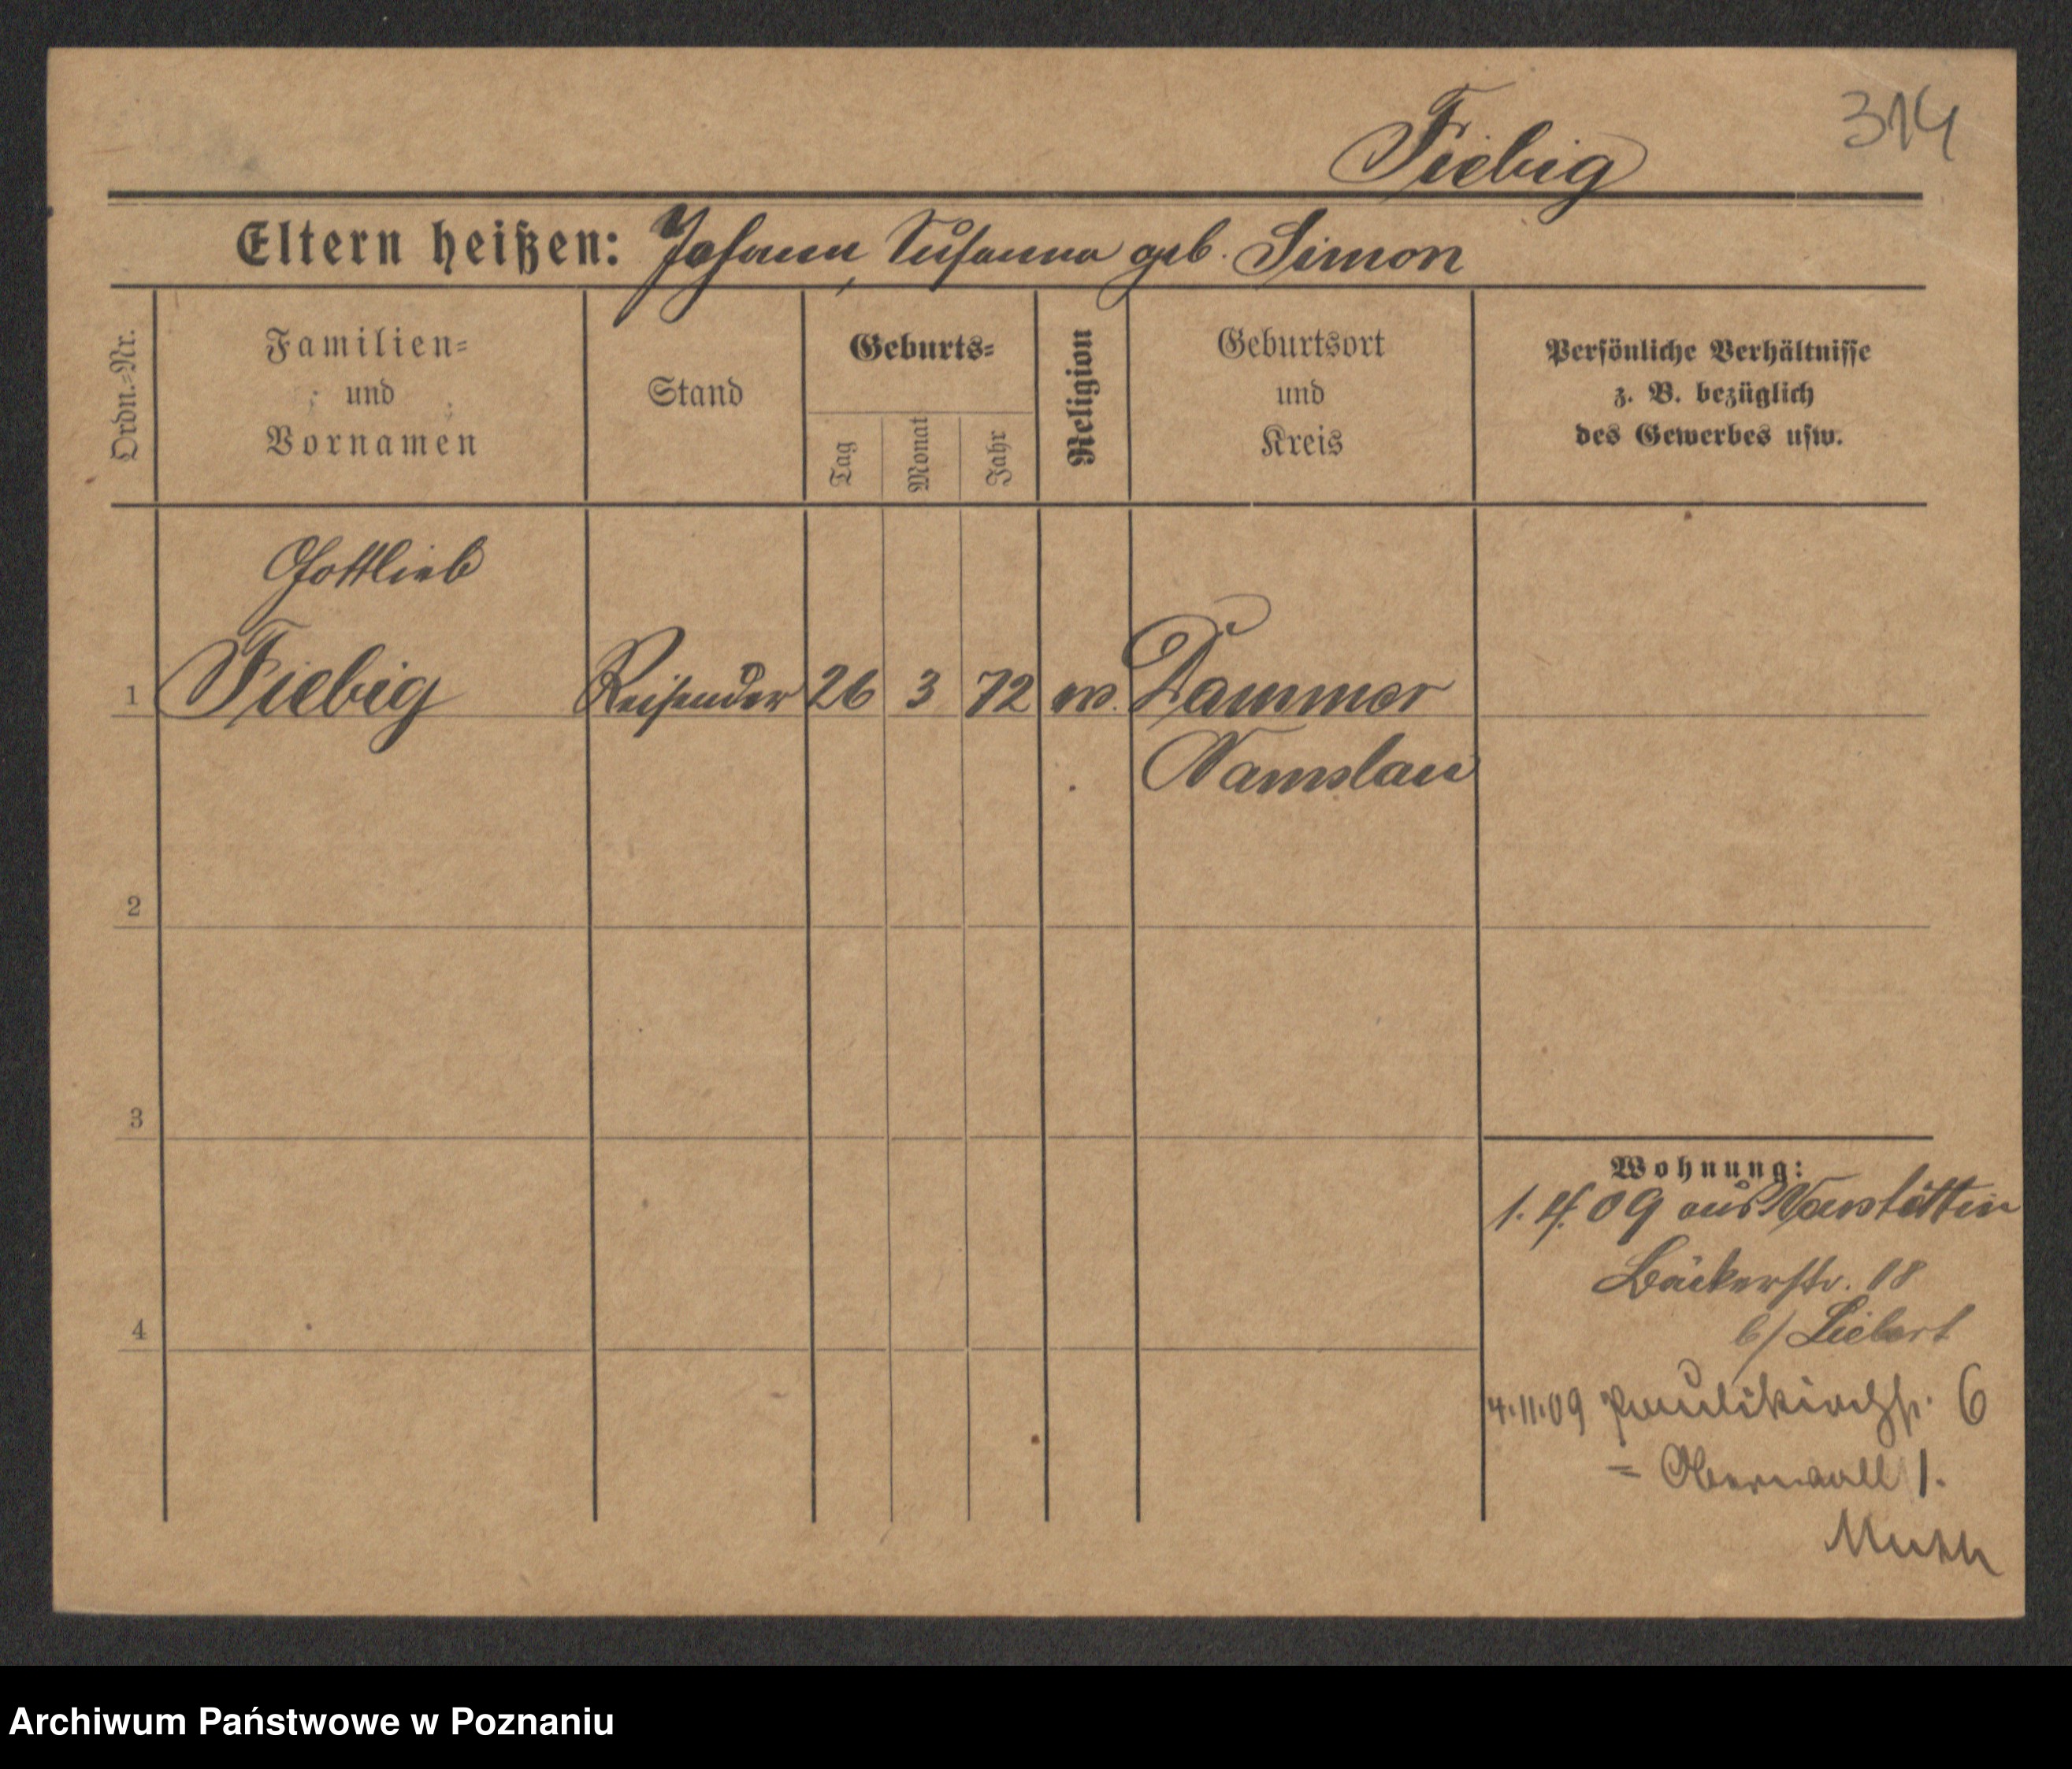 314
Fiebig
Eltern heißen: Johann, Susanna geb. Simon
Ordn.=Nr.
Familien=
und
Vornamen
Stand
Geburts=
Tag
Monat
Jahr
Religion
Geburtsort
und
Kreis
Persönliche Verhältnisse
z. B. bezüglich
des Gewerbes usw.
Gottlieb
1 Fiebig Reisender 26 3 72 ev. Dammer
Namslau
2
3
4
Wohnung:
1.4.09 aus
Bäckerstr. 18
b/ Liebert
4.11.09 Paulikirchstr. 6
= Oberwall 1.
Archiwum Państwowe w Poznaniu